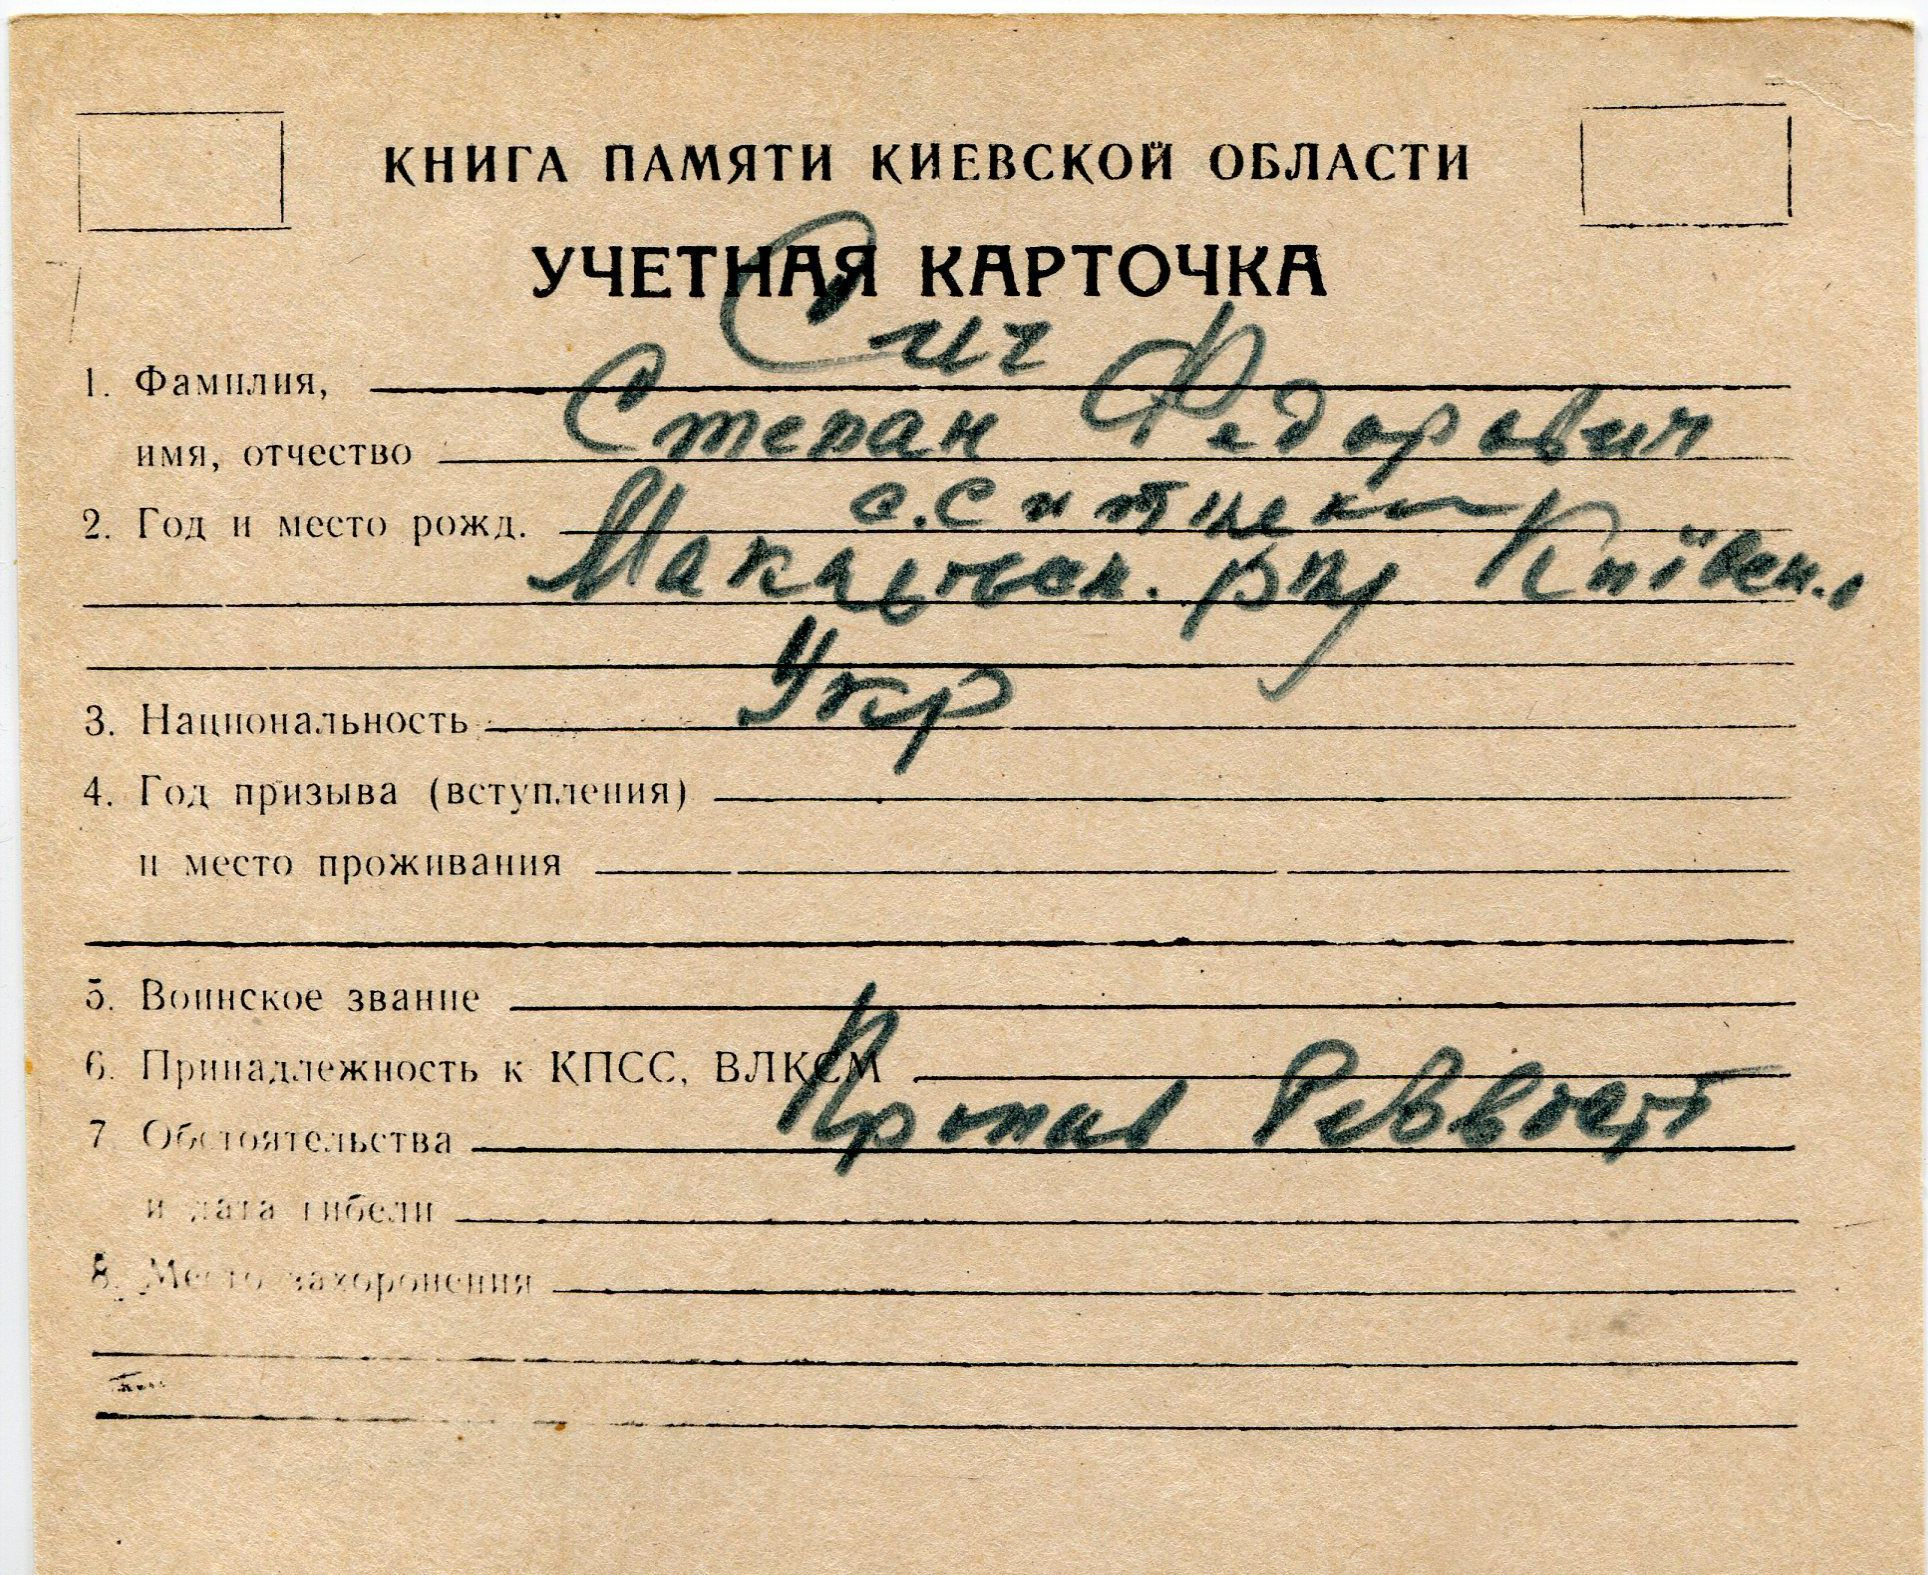 КНИГА ПАМЯТИ КИЕВСКОЙ ОБЛАСТИ
УЧЕТНАЯ КАРТОЧКА
Сич
1. Фамилия,
Степан Федорович
имя, отчество
с. Ситняки
2. Год и место рожд.
Макарівск. р-ну Київск.
Укр
3. Национальность
4. Год призыва (вступления)
и место проживания
5. Воинское звание
6. Принадлежность к КПСС, ВЛКСМ
7. Обстоятельства
и дата гибели
8. Место захоронения